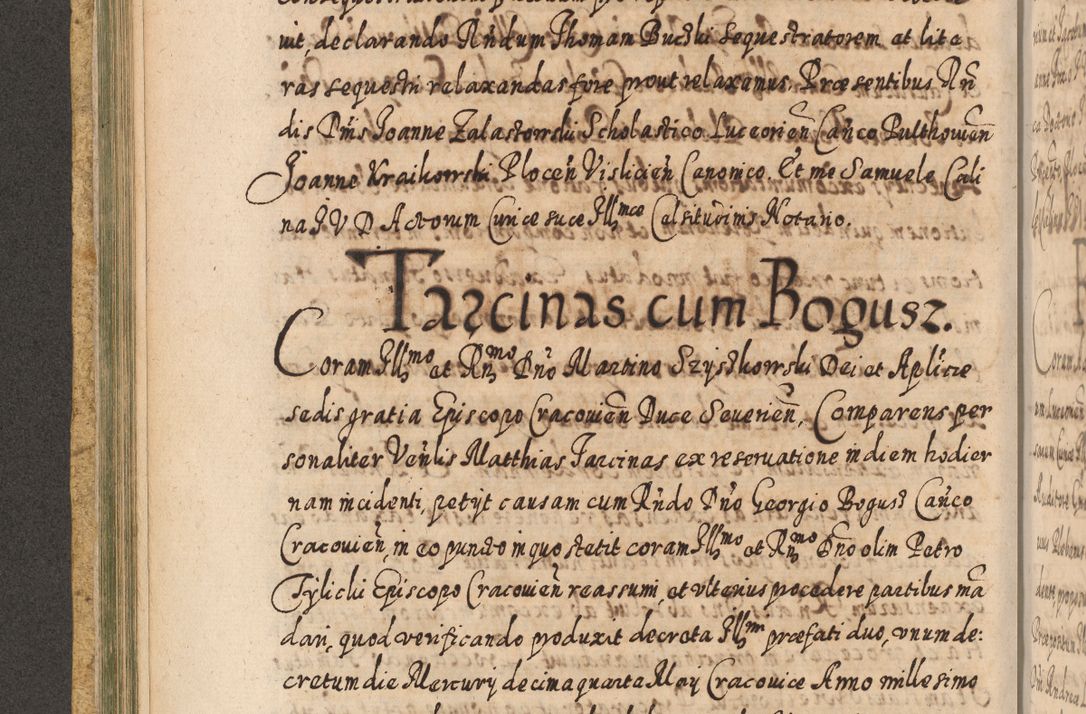 uit, declarando Rńdum Thomam Bucski Sequestratorem at lite
ras sequestri relaxandas fore prout relaxamus. Præsentibus Rñ
dis Dńis Joanne Zalastowski Scholastico Luceorień Cańco Pulthovień
Joanne Kraikowski Plocen̄ Vislicień Canonico. Et me Samuele Cali
na J V D Actorum Curiæ suæ Illmæ Celsitudinis Notario.
Tarcinas cum Bogusz.
Coram Illmo et Rmo Dńo Martino Szyszkowski Dei et Aplicæ
sedis gratia Episcopo Cracovień Duce Severień, Comparens per
sonaliter Veńlis Matthias Tarcinas ex reservatione in diem hodier
nam incidenti, petijt causam cum Rńdo Dńo Georgio Bogusz Cańco
Cracovień, in eo puncto in quo stetit coram Illmo et Rmo Dńo olim Petro
Tylicki Episcopo Cracovień reassumi, et ulterius procedere partibus mā
dari, quod verificando produxit decreta Illmi præfati duo, unum de:
cretum die Mercurij decima quarta May Cracoviæ Anno millesimo